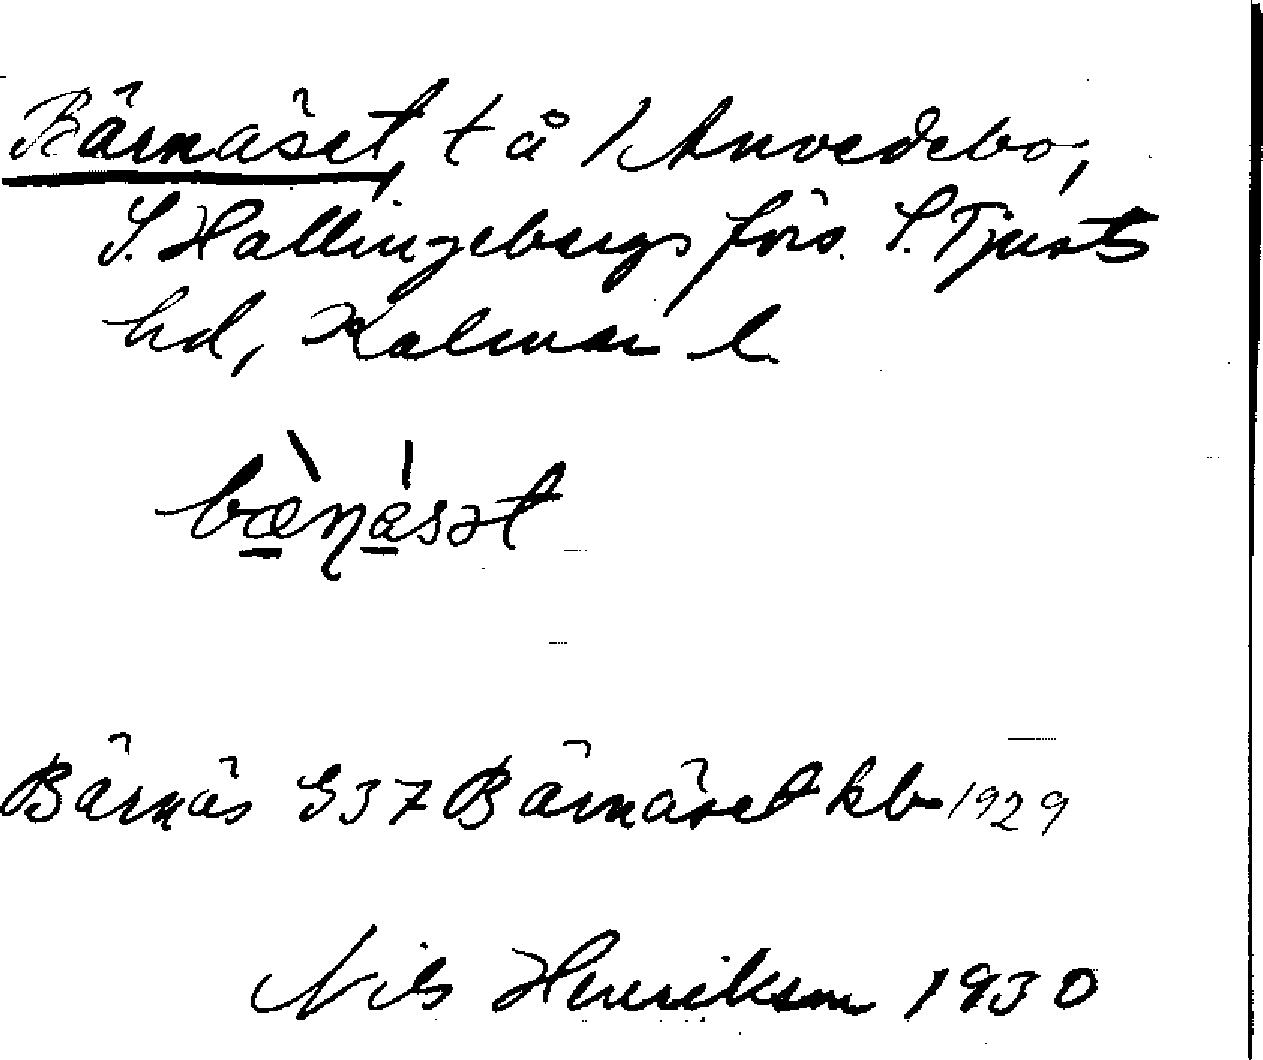 Bärnäset, t å 1 Anvedebo,
S. Hallingebergs förs. S. Tjusts
hd, Kalmar l.
bæ̀ṇæ̍sət
Bärnäs G37 Bärnäset kb 1929
Nils Henrikson 1930